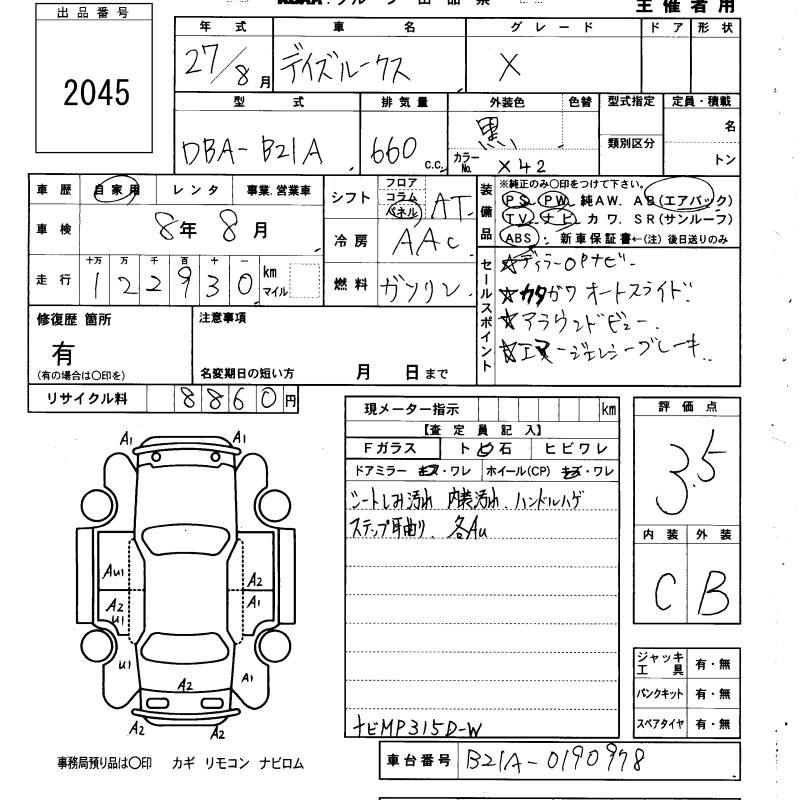 主催者用
出品番号
2045
年式 車名 グレード ドア 形状
27/8月 デイズルークス X
型式 排気量 外装色 色替 型式指定 定員・積載
DBA-B21A 660 c.c. 黒 カラーNo. X42 類別区分 名
トン
車歴 自家用 レンタ 事業.営業車
車検 8年 8月
走行 十万 万 千 百 十 一
1 2 2 9 3 0 km マイル
シフト フロア コラム パネル AT
冷房 AAC
燃料 ガソリン
装備品 ※純正のみ○印をつけて下さい。
PS PW 純AW. AB(エアバック)
TV ナビ カワ. SR(サンルーフ)
ABS 新車保証書←(注) 後日送りのみ
セールスポイント
☆ディラーOPナビー
☆カタガワ オートスライド
☆アラウンドビュー
☆エマージェンシーブレーキ
修復歴 箇所
有
(有の場合は○印を)
注意事項
名変期日の短い方 月 日まで
リサイクル料 8860円
現メーター指示 km
【査定員記入】
Fガラス トビ石 ヒビワレ
ドアミラー キズ・ワレ ホイール(CP) キズ・ワレ
シートしみ汚れ 内装汚れ、ハンドルハゲ
ステップ耳曲り、各Au
ナビMP315D-W
評価点
3.5
内装 外装
C B
ジャッキ工具 有・無
パンクキット 有・無
スペアタイヤ 有・無
A1 A1
AU1 A2
A2 U1 A1
U1 A1
A2
A2 A2
事務局預り品は○印 カギ リモコン ナビロム
車台番号 B21A-0190978